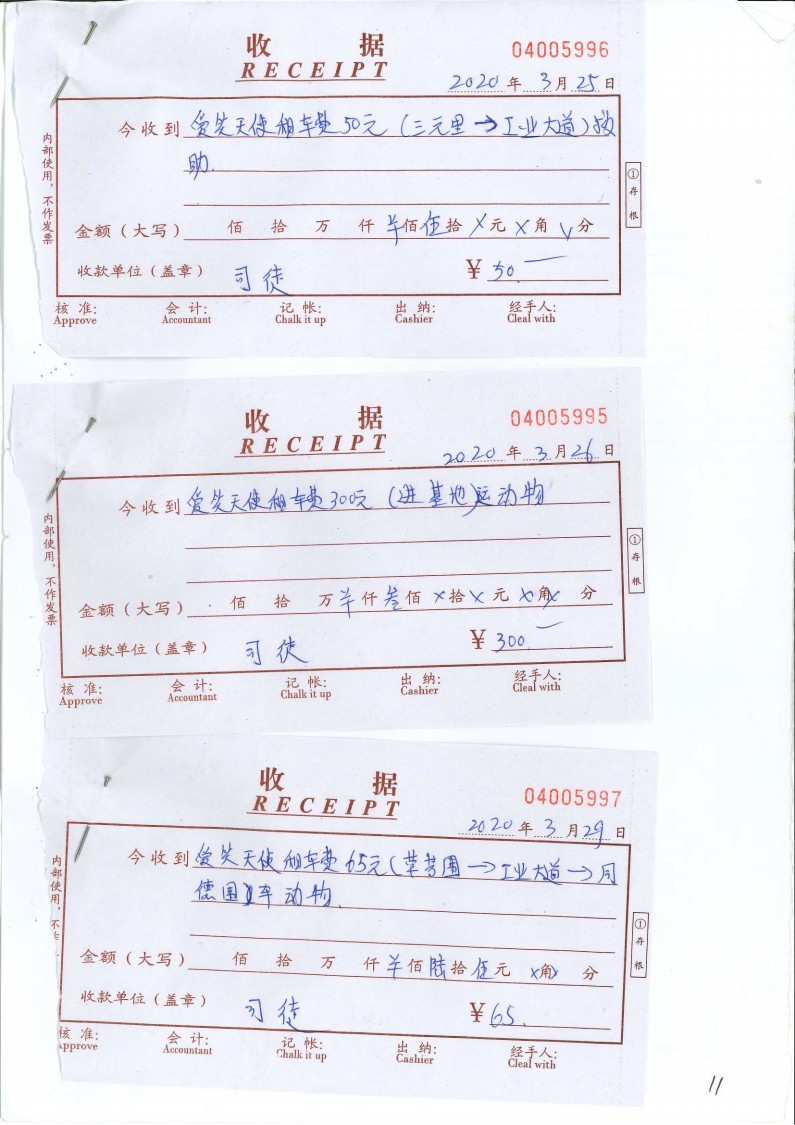 收 据
RECEIPT
04005996
2020 年 3 月 25 日
今收到 爱笑天使租车费50元(三元里→工业大道)救
助.
金额(大写) 佰 拾 万 仟 羊佰 伍拾 X元 X角 \分
收款单位(盖章) 司徒 ¥ 50.—
核 准: 会 计: 记 帐: 出 纳: 经手人:
Approve Accountant Chalk it up Cashier Cleal with
内部使用,不作发票
①存根
收 据
RECEIPT
04005995
2020 年 3 月 26 日
今收到 爱笑天使租车费300元(进基地)运动物
金额(大写) 佰 拾 万 羊仟 叁佰 X拾 X元 X角X 分
收款单位(盖章) 司徒 ¥ 300.—
核 准: 会 计: 记 帐: 出 纳: 经手人:
Approve Accountant Chalk it up Cashier Cleal with
内部使用,不作发票
①存根
收 据
RECEIPT
04005997
2020 年 3 月 29 日
今收到 爱笑天使租车费65元(芳围→工业大道→同
德围 车动物.
金额(大写) 佰 拾 万 仟 羊佰 陆拾 伍元 X角X 分
收款单位(盖章) 司徒 ¥65.
核 准: 会 计: 记 帐: 出 纳: 经手人:
pprove Accountant Chalk it up Cashier Cleal with
内部使用,不
①存根
11